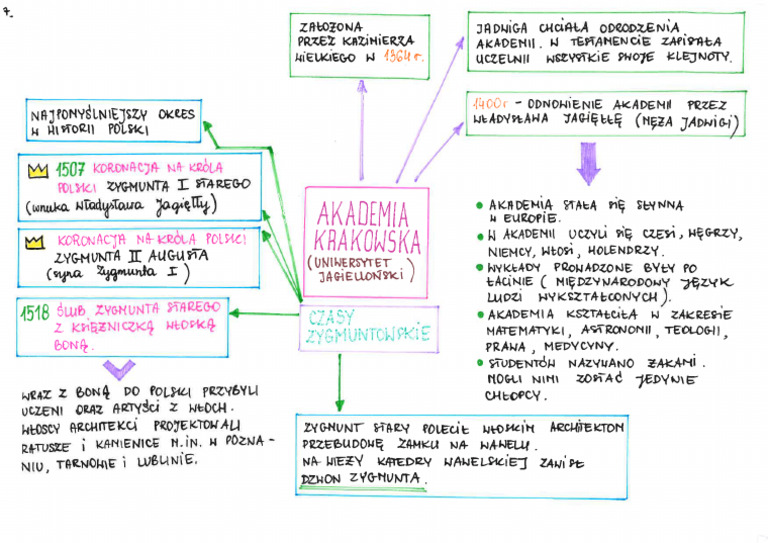 7.
ZAŁOŻONA
PRZEZ KAZIMIERZA
WIELKIEGO W 1364 r.
JADWIGA CHCIAŁA ODRODZENIA
AKADEMII. W TESTAMENCIE ZAPISAŁA
UCZELNII WSZYSTKIE SWOJE KLEJNOTY.
1400r - ODNOWIENIE AKADEMII PRZEZ
WŁADYSŁAWA JAGIEŁŁĘ (MĘŻA JADWIGI)
NAJPOMYŚLNIEJSZY OKRES
W HISTORII POLSKI
1507 KORONACJA NA KRÓLA
POLSKI ZYGMUNTA I STAREGO
(wnuka Władysława Jagiełły)
KORONACJA NA KRÓLA POLSKI
ZYGMUNTA II AUGUSTA
(syna Zygmunta I)
1518 ŚLUB ZYGMUNTA STAREGO
Z KSIĘŻNICZKĄ WŁOSKĄ
BONĄ.
WRAZ Z BONĄ DO POLSKI PRZYBYLI
UCZENI ORAZ ARTYŚCI Z WŁOCH.
WŁOSCY ARCHITEKCI PROJEKTOWALI
RATUSZE I KAMIENICE M.IN. W POZNA-
NIU, TARNOWIE I LUBLINIE.
AKADEMIA
KRAKOWSKA
(UNIWERSYTET
JAGIELLOŃSKI)
CZASY
ZYGMUNTOWSKIE
• AKADEMIA STAŁA SIĘ SŁYNNA
W EUROPIE.
• W AKADEMII UCZYLI SIĘ CZESI, WĘGRZY,
NIEMCY, WŁOSI, HOLENDRZY.
• WYKŁADY PROWADZONE BYŁY PO
ŁACINIE (MIĘDZYNARODOWY JĘZYK
LUDZI WYKSZTAŁCONYCH).
• AKADEMIA KSZTAŁCIŁA W ZAKRESIE
MATEMATYKI, ASTRONOMII, TEOLOGII,
PRAWA, MEDYCYNY.
• STUDENTÓW NAZYWANO ŻAKAMI.
MOGLI NIMI ZOSTAĆ JEDYNIE
CHŁOPCY.
ZYGMUNT STARY POLECIŁ WŁOSKIM ARCHITEKTOM
PRZEBUDOWĘ ZAMKU NA WAWELU.
NA WIEŻY KATEDRY WAWELSKIEJ ZAWISŁ
DZWON ZYGMUNTA.